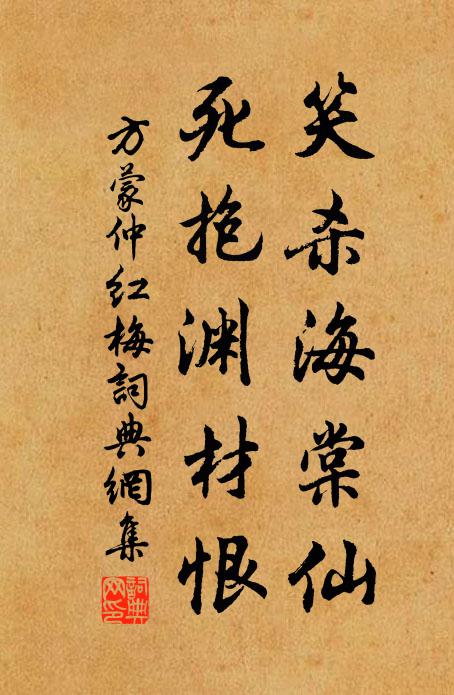 笑杀海棠仙
死抱渊材恨
方蒙仲红梅詞典網集
詞典